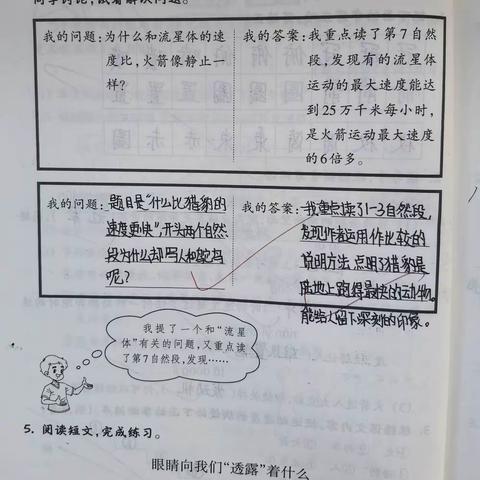 同学讨论,试着解决问题。
我的问题:为什么和流星体的
速度比,火箭像静止一
样?
我的答案:我重点读了第7自然
段,发现有的流星体
运动的最大速度能达
到25万千米每小时,
是火箭运动最大速度
的6倍多。
我的问题:题目是“什么比猎豹的
速度更快”,开头两个自然
段为什么却写人和鸵鸟
呢?
我的答案:我重点读了1-3自然段,
发现作者运用作比较的
说明方法,点明了猎豹是
陆地上跑得最快的动物,
能给人留下深刻的印象。
我提了一个和“流星
体”有关的问题,又重点读
了第7自然段,发现……
5. 阅读短文,完成练习。
眼睛向我们“透露”着什么